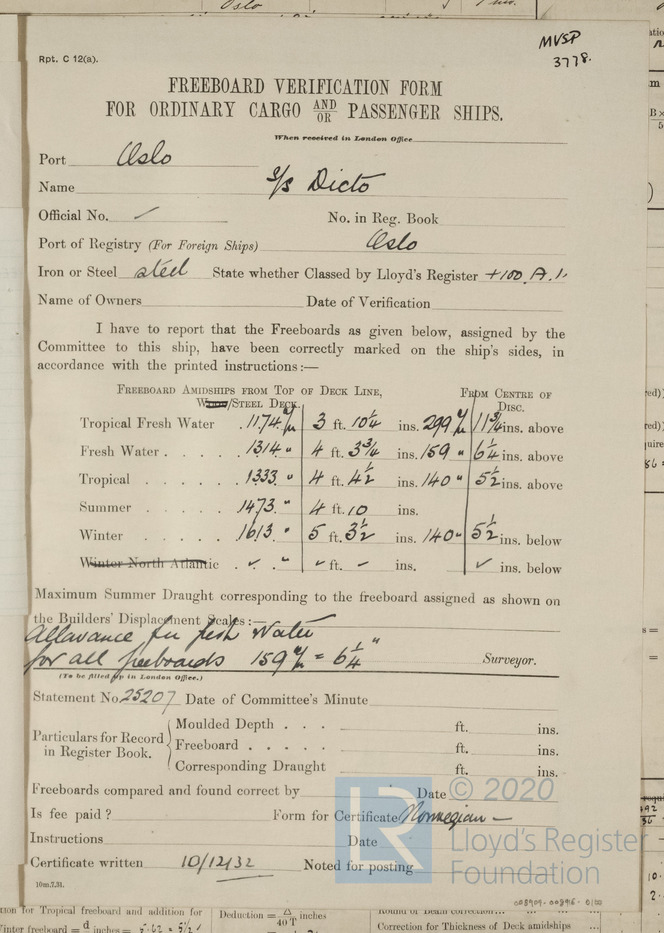 Oslo
MVSP
3778.
Rpt. C 12(a).
FREEBOARD VERIFICATION FORM
FOR ORDINARY CARGO AND/OR PASSENGER SHIPS.
When received in London Office
Port Oslo
Name s/s Dicto
Official No. ✓ No. in Reg. Book
Port of Registry (For Foreign Ships) Oslo
Iron or Steel steel State whether Classed by Lloyd's Register +100. A.1.
Name of Owners Date of Verification
I have to report that the Freeboards as given below, assigned by the
Committee to this ship, have been correctly marked on the ship's sides, in
accordance with the printed instructions:—
FREEBOARD AMIDSHIPS FROM TOP OF DECK LINE, FROM CENTRE OF
WOOD/STEEL DECK. DISC.
Tropical Fresh Water . 1174 m/m 3 ft. 10 1/4 ins. 299 m/m 11 3/4 ins. above
Fresh Water . . . . 1314 " 4 ft. 3 3/4 ins. 159 " 6 1/4 ins. above
Tropical . . . . . 1333. " 4 ft. 4 1/2 ins. 140 " 5 1/2 ins. above
Summer . . . . . 1473. " 4 ft. 10 ins.
Winter . . . . . 1613. " 5 ft. 3 1/2 ins. 140 " 5 1/2 ins. below
Winter North Atlantic . ✓ . " " ft. – ins. ✓ ins. below
Maximum Summer Draught corresponding to the freeboard assigned as shown on
the Builders' Displacement Scales:—
Allowance for fresh water
for all freeboards 159 m/m = 6 1/4" Surveyor.
(To be filled up in London Office.)
Statement No. 25207 Date of Committee's Minute
Particulars for Record in Register Book.
Moulded Depth . . . ft. ins.
Freeboard . . . . . ft. ins.
Corresponding Draught ft. ins.
Freeboards compared and found correct by Date
Is fee paid ? Form for Certificate Norwegian –
Instructions Date
Certificate written 10/12/32 Noted for posting
10m.7.31.
© 2020
LR
Lloyd's Register
Foundation
008909-008916-0100
tion for Tropical freeboard and addition for
Winter freeboard = d inches = 5.62 = 5 1/2"
Deduction = Δ/40 T inches
Correction for Thickness of Deck amidships